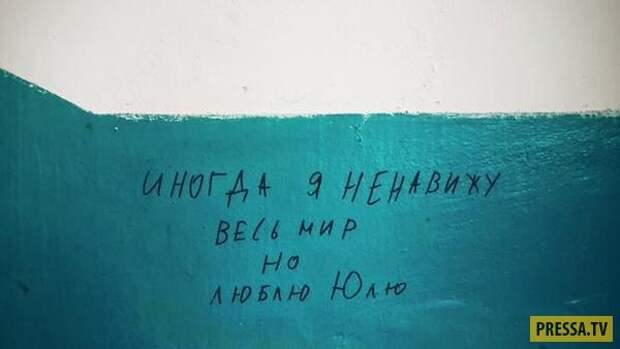 ИНОГДА Я НЕНАВИЖУ
ВЕСЬ МИР
НО
ЛЮБЛЮ Юлю
PRESSA.TV